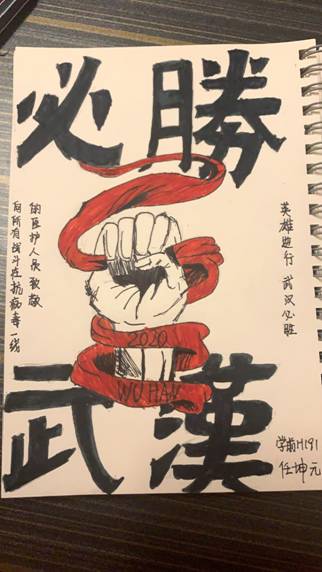 必勝
向所有战斗在抗病毒一线
的医护人员致敬
英雄逆行 武汉必胜
2020
WU HAN
武漢
学前H191
任坤元